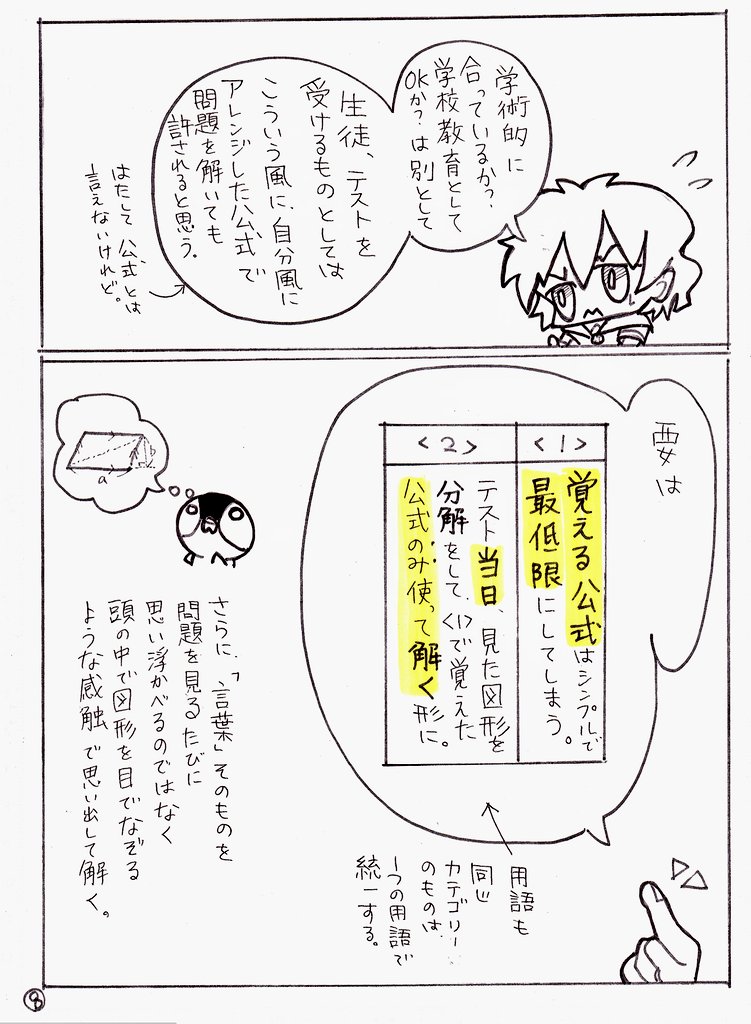 学術的に
合っているか?
学校教育として
OKか?は別として
生徒、テストを
受けるものとしては
こういう風に、自分風に
アレンジした公式で
問題を解いても
許されると思う。
はたして公式とは
言えないけれど。
要は
<1>
覚える公式はシンプルで
最低限にしてしまう。
<2>
テスト当日、見た図形を
分解をして、<1>で覚えた
公式のみ使って解く形に。
用語も
同じ
カテゴリー
のものは
1つの用語で
統一する。
a
b
さらに、「言葉」そのものを
問題を見るたびに
思い浮かべるのではなく
頭の中で図形を目でなぞる
ような感触で思い出して解く。
8